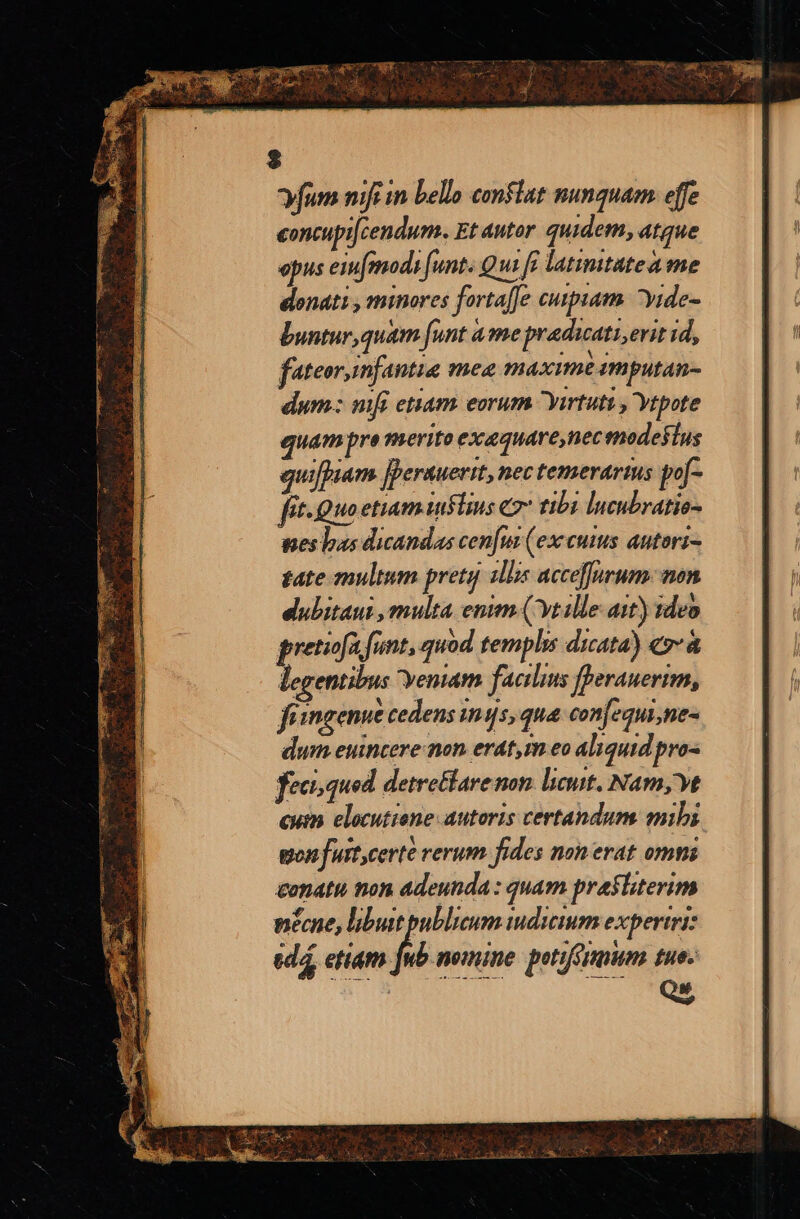 8
vſum niſi in bello conſtat nunquam eſſe
concupiſcendum. Et autor quidem, atque
opus eiuſmodi ſunt. Qui ſi latinitate à me
donati, minores fortaſſe cuipiam vide-
buntur, quàm ſunt à me prædicati, erit id,
fateor, infantiæ meæ maximè imputan-
dum: niſi etiam eorum virtuti, vtpote
quam pro merito exæquare, nec modeſtus
quiſpiam ſperauerit, nec temerarius poſ-
ſit. Quo etiam iuſtius & tibi lucubratio-
nes has dicandas cenſui (ex cuius autori-
tate multum pretij illis acceſſurum non
dubitaui, multa enim (vt ille ait) ideò
pretioſa ſunt, quòd templis dicata) & à
legentibus veniam facilius ſperauerim,
ſi ingenuè cedens in ijs, quæ conſequi, ne-
dum euincere non erat, in eo aliquid pro-
feci, quod detrectare non licuit. Nam, vt
cum elocutione autoris certandum mihi
non fuit, certè rerum fides non erat omni
conatu non adeunda: quam præſtiterim
nécne, libuit publicum iudicium experiri:
idq́; etiam ſub nomine potiſsimùm tuo.
Qu